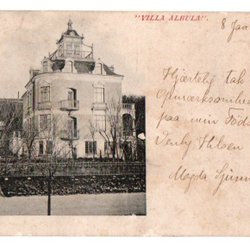 "VILLA ALBULA".
8 Jan
Hjertelig tak
Opmærksomhe
paa min Föd
Venlig Hilsen
Magda